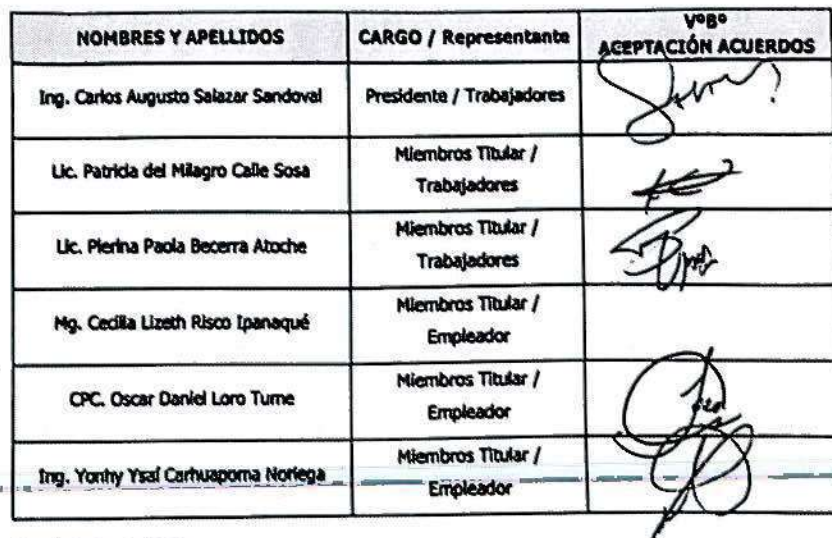 NOMBRES Y APELLIDOS
CARGO / Representante
VºBº
ACEPTACIÓN ACUERDOS
Ing. Carlos Augusto Salazar Sandoval
Presidente / Trabajadores
Lic. Patricia del Milagro Calle Sosa
Miembros Titular /
Trabajadores
Lic. Pierina Paola Becerra Atoche
Miembros Titular /
Trabajadores
Mg. Cecilia Lizeth Risco Ipanaqué
Miembros Titular /
Empleador
CPC. Oscar Daniel Loro Tume
Miembros Titular /
Empleador
Ing. Yonhy Ysaí Carhuapoma Noriega
Miembros Titular /
Empleador